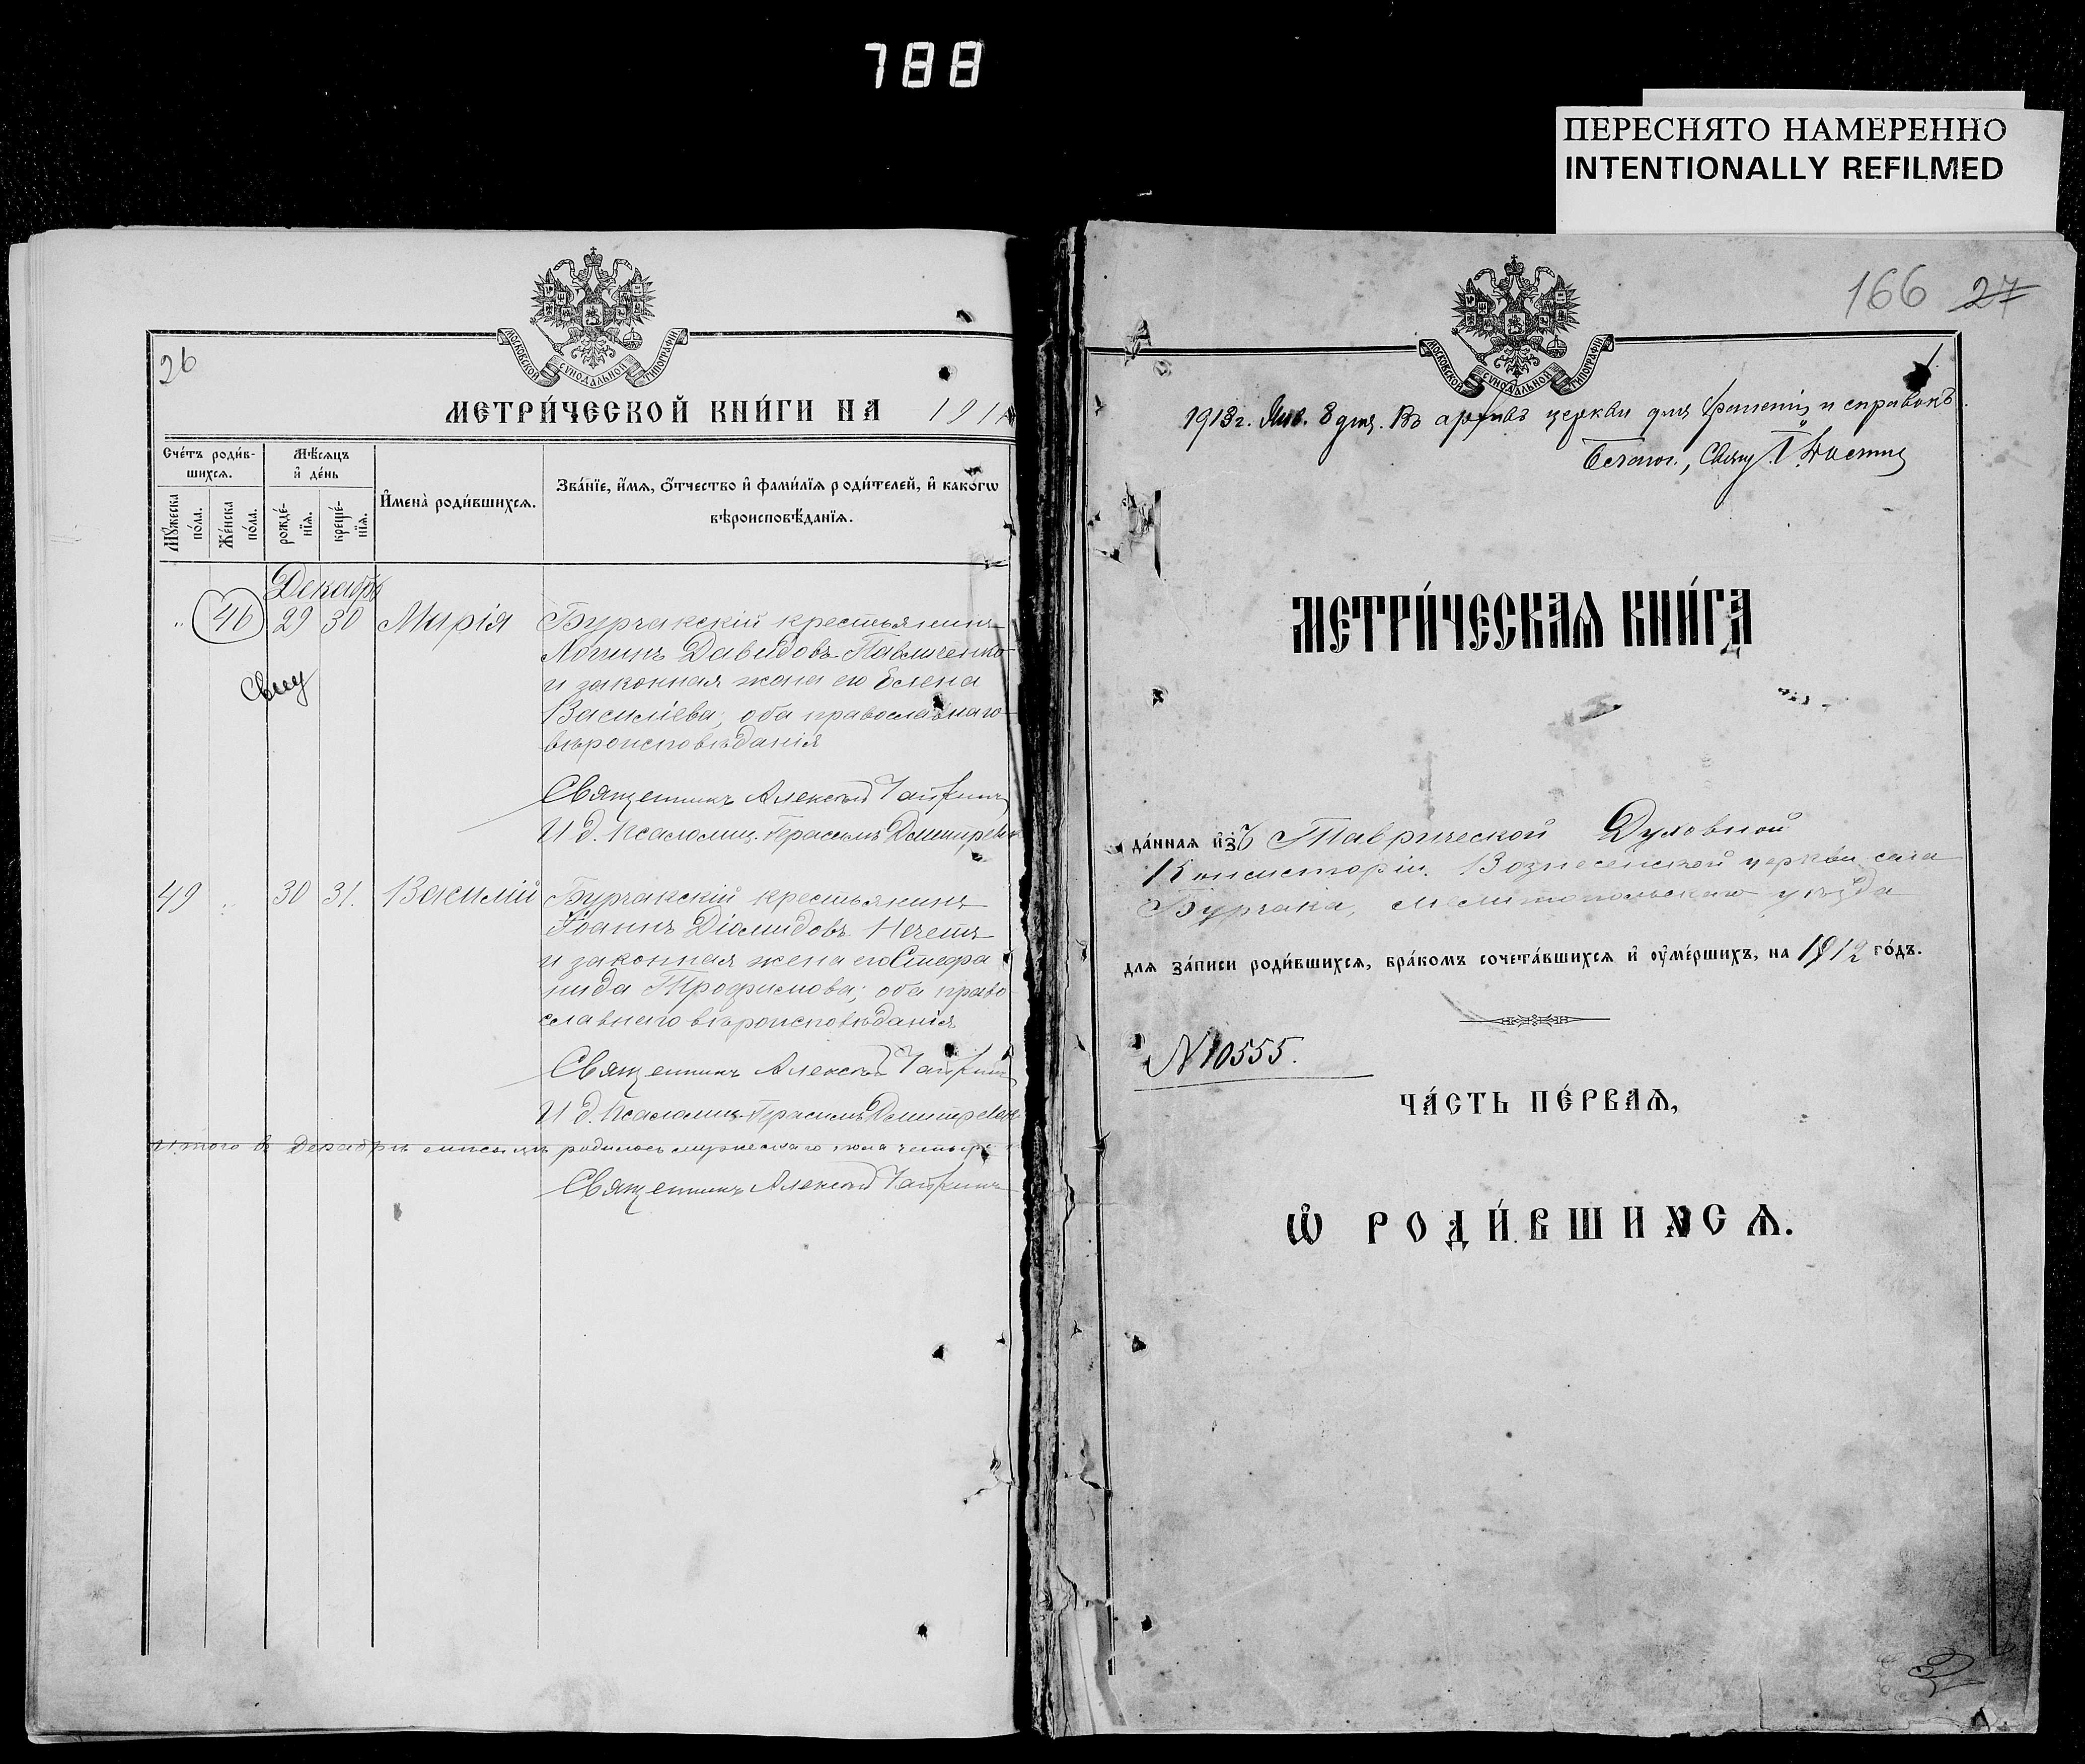 788
ПЕРЕСНЯТО НАМЕРЕННО
INTENTIONALLY REFILMED
26
МОСКОВСКОЙ СѴНОДАЛЬНОЙ ТИПОГРАФІИ
МЕТРИ́ЧЕСКОЙ КНИ́ГИ НА 191
Счéтъ роди́в-
шихсѧ.
Мѣ́сѧцъ
и҆ де́нь
Мꙋ́жеска
по́ла.
Же́нска
по́ла.
рожде́-
нїѧ.
креще́-
нїѧ.
И҆мена̀ роди́вшихсѧ.
Зва́нїе, и҆́мѧ, ѻ҆́тчество и҆ фами́лїѧ роди́телей, и҆ какогѡ
вѣроисповѣ́данїѧ.
Декабрь
" 46 29 30 Марія Бурчакскій крестьянинъ
Логинъ Давидовъ Павличенко
и законная жена его Елена
Василіева; оба православнаго
вѣроисповѣданія
Священникъ Алексѣй
И д. Псаломщ. Герасимъ
49 " 30 31. Василій Бурчакскій крестьянинъ
Іоаннъ Діомидовъ
и законная жена его Стефа
нида Трофимова; оба право
славнаго вѣроисповѣданія
Священникъ Алексѣй
И д. Псаломщ. Герасимъ
Итого въ Декабрѣ мѣсяцѣ родилось мужескаго пола четыре
Священникъ Алексѣй
166 27
МОСКОВСКОЙ СѴНОДАЛЬНОЙ ТИПОГРАФІИ
1913 г. Янв. 8 дня. Въ архивъ церкви для храненія и справокъ
Благоч., Свящ.
МЕТРИ́ЧЕСКАѦ КНИ́ГА
да́ннаѧ и҆зъ Таврической Духовной
Консисторіи Вознесенской церкви села
Бурчака, Мелитопольскаго уѣзда
длѧ за́писи роди́вшихсѧ, бра́комъ сочета́вшихсѧ и҆ ᲂу҆ме́ршихъ, на 1912 го́дъ.
№ 10555.
ЧА́СТЬ ПЕ́РВАѦ,
Ѡ҆ РОДИ́ВШИХСѦ.